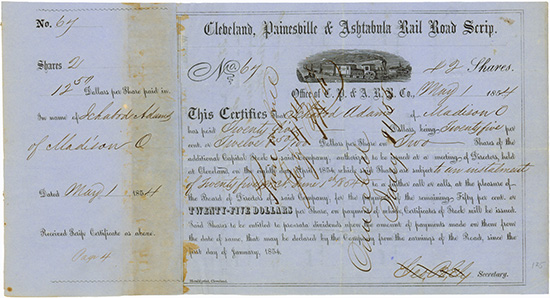 No. 67
Shares 2
12 50 Dollars per Share paid in.
In name of Ichabod Adams
of Madison O
Dated May 1 1854
Received Scrip Certificate as above.
Cleveland, Painesville & Ashtabula Rail Road Scrip.
No 67
2 Shares.
Office of C. P. & A. R. R. Co., May 1 1854
This Certifies that Ichabod Adams of Madison O
has paid Twenty five Dollars, being Twenty five per
cent or Twelve Dollars per Share on Two Shares of the
additional Capital Stock of said Company, authorized to be issued at a meeting of Directors, held
at Cleveland, on the April 1854, which said Shares are subject to an instalment
of Twenty five June 1st 1854 and to a further call or calls at the pleasure of
the Board of Directors of said Company, for the remaining Fifty per cent. or
TWENTY-FIVE DOLLARS per Share, on payment of which Certificates of Stock will be issued.
Said Shares to be entitled to prorata dividends upon amount of payments made on them from
the date of same, that may be declared by the Company from the earnings of the Road, since the
first day of January, 1854.
Secretary.